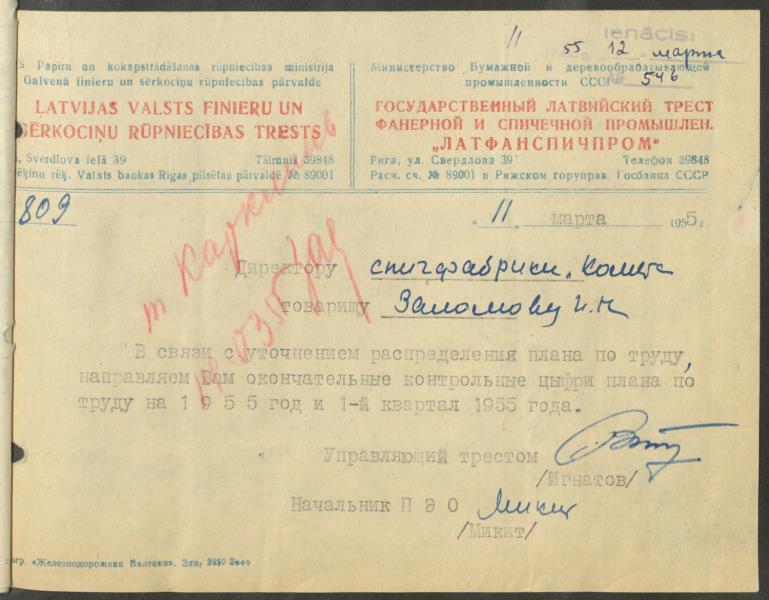 ienācis:
11
55 12 марта
№ 546
S Papīru un kokapstrādāšanas rūpniecības ministrija
Galvenā finieru un sērkociņu rūpniecības pārvalde
LATVIJAS VALSTS FINIERU UN
SĒRKOCIŅU RŪPNIECĪBAS TRESTS
Sverdlova ielā 39 Tālrunis 39848
rēķ. Valsts bankas Rīgas pilsētas pārvaldē № 89001
Министерство Бумажной и деревообрабатывающей
промышленности СССР
ГОСУДАРСТВЕННЫЙ ЛАТВИЙСКИЙ ТРЕСТ
ФАНЕРНОЙ И СПИЧЕЧНОЙ ПРОМЫШЛЕН.
„ЛАТФАНСПИЧПРОМ“
Рига, ул. Свердлова 39 Телефон 39848
Расч. сч. № 89001 в Рижском горуправ. Госбанка СССР
809
„11 марта 1955г.
Директору спичфабрики „Комета
товарищу Заломову И.Н
В связи с уточнением распределения плана по труду,
направляем Вам окончательные контрольные цыфри плана по
труду на 1955 год и 1-й квартал 1955 года.
Управляющий трестом
/Игнатов/
Начальник П Э О Микит
/Микит/
«Железнодорожник Балтики». Зак. 3650